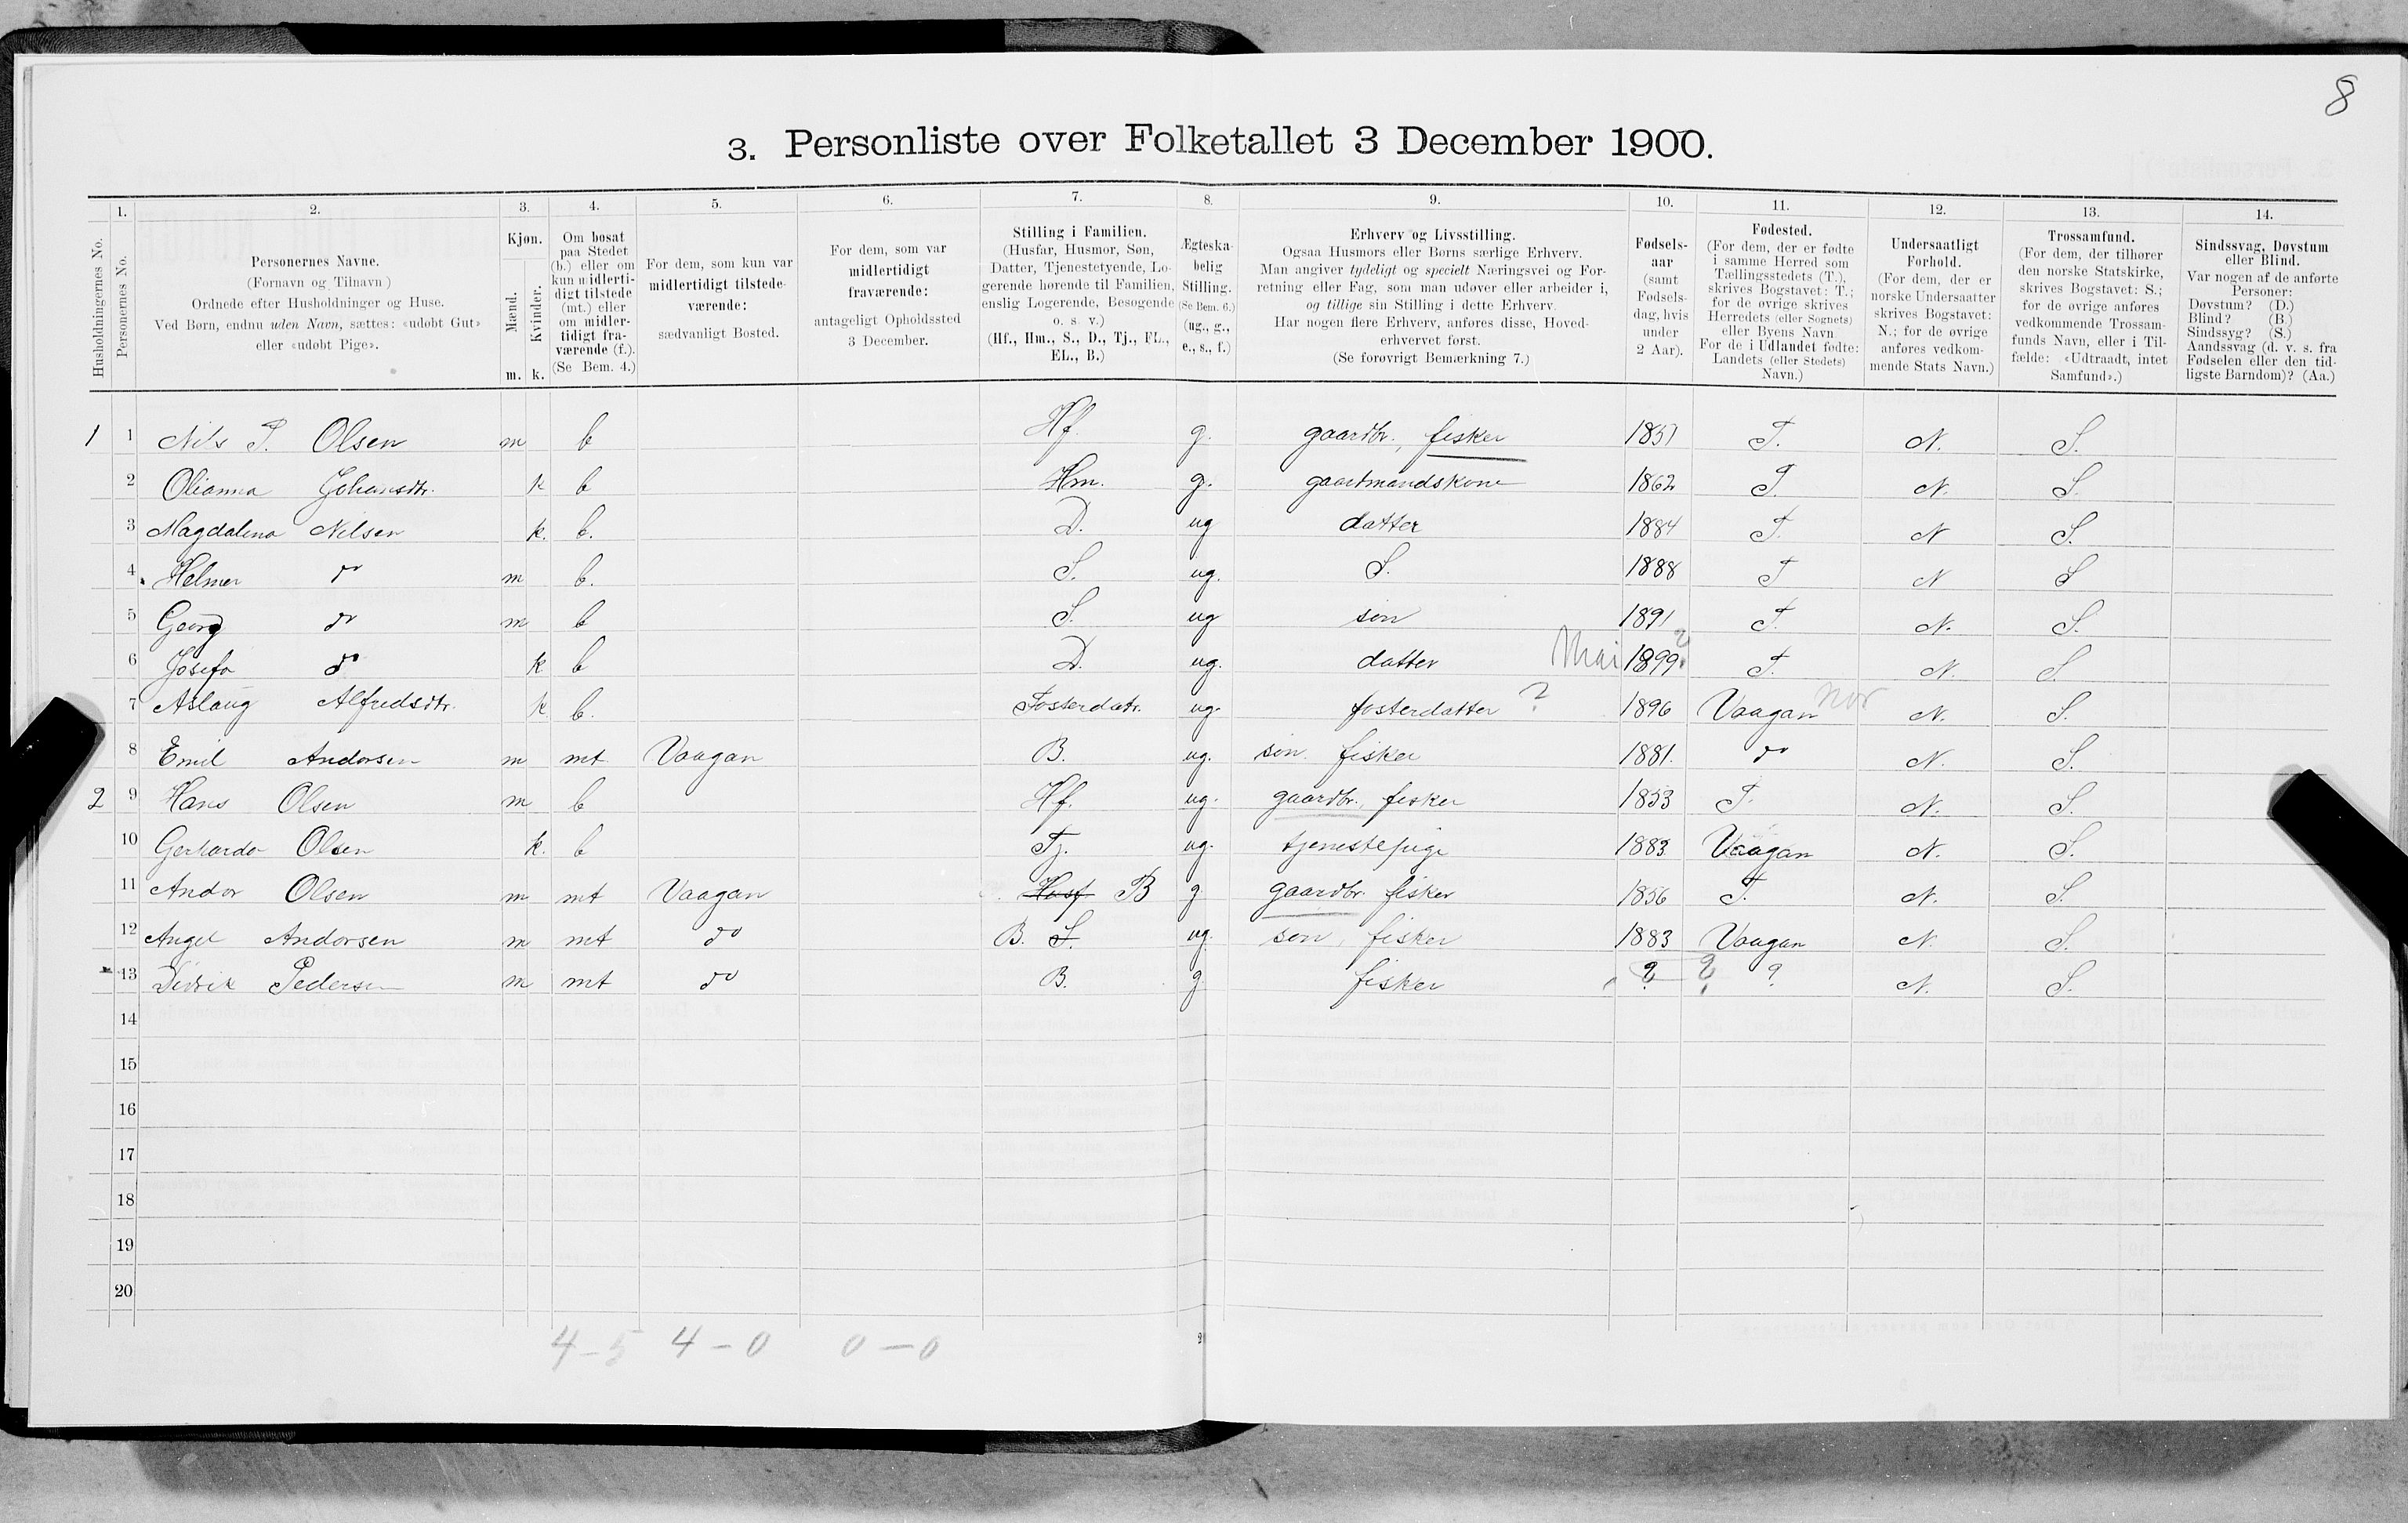 8
3. Personliste over Folketallet 3 December 1900.
Husholdningernes No.
1. Personernes No.
2. Personernes Navne. (Fornavn og Tilnavn) Ordnede efter Husholdninger og Huse. Ved Børn, endnu uden Navn, sættes: «udøbt Gut» eller «udøbt Pige».
3. Kjøn. Mænd. Kvinder. m. k.
4. Om bosat paa Stedet (b.) eller om kun midlertidigt tilstede (mt.) eller om midlertidigt fraværende (f.). (Se Bem. 4.)
5. For dem, som kun var midlertidigt tilstedeværende: sædvanligt Bosted.
6. For dem, som var midlertidigt fraværende: antageligt Opholdssted 3 December.
7. Stilling i Familien. (Husfar, Husmor, Søn, Datter, Tjenestetyende, Logerende hørende til Familien, enslig Logerende, Besøgende o. s. v.) (Hf., Hm., S., D., Tj., FL., EL., B.)
8. Ægteskabelig Stilling. (Se Bem. 6.) (ug., g., e., s., f.)
9. Erhverv og Livsstilling. Ogsaa Husmors eller Børns særlige Erhverv. Man angiver tydeligt og specielt Næringsvei og Forretning eller Fag, som man udøver eller arbeider i, og tillige sin Stilling i dette Erhverv. Har nogen flere Erhverv, anføres disse, Hovederhvervet først. (Se forøvrigt Bemærkning 7.)
10. Fødselsaar (samt Fødselsdag, hvis under 2 Aar).
11. Fødested. (For dem, der er fødte i samme Herred som Tællingsstedets (T.), skrives Bogstavet: T.; for de øvrige skrives Herredets (eller Sognets) eller Byens Navn. For de i Udlandet fødte: Landets (eller Stedets) Navn.)
12. Undersaatligt Forhold. (For dem, der er norske Undersaatter skrives Bogstavet: N.; for de øvrige anføres vedkommende Stats Navn.)
13. Trossamfund. (For dem, der tilhører den norske Statskirke, skrives Bogstavet: S.; for de øvrige anføres vedkommende Trossamfunds Navn, eller i Tilfælde: «Udtraadt, intet Samfund».)
14. Sindssvag, Døvstum eller Blind. Var nogen af de anførte Personer: Døvstum? (D.) Blind? (B) Sindssyg? (S.) Aandssvag (d. v. s. fra Fødselen eller den tidligste Barndom)? (Aa.)
1 1 Nils P. Olsen m b Hf. g. gaardbr., fisker 1851 T. N. S.
2 Olianna Johansdtr. k b Hm. g. gaardmandskone 1862 T. N. S.
3 Magdalena Nilsen k. b. D. ug datter 1884 T. N S.
4 Helmer do m b. S. ug. S. 1888 T N S
5 Georg do m b S. ug søn 1891 T. N. S.
6 Josefa do k b D. ug. datter Mai 1899 ? T. N. S.
7 Aslaug Alfredsdtr. k b. Fosterdatr. ug. fosterdatter ? 1896 Vaagan nor N. S.
8 Emil Andorsen m mt Vaagan B. ug. søn fisker 1881. do N. S.
2 9 Hans Olsen m b Hf. ug. gaardbr., fisker 1853 T. N. S.
10 Gerharda Olsen k. b Tj. ug. tjenestepige 1883 Vaagan N. S.
11 Andor Olsen m mt Vaagan Husf B g gaardbr. fisker 1856 T. N. S.
12 Angel Andorsen m mt do B. S. ug. søn, fisker 1883 Vaagan N. S.
13 Didrik Pedersen m mt do B. g fisker ? ? ? N. S.
14
15
16
17
18
19
20
4-5 4-0 0-0